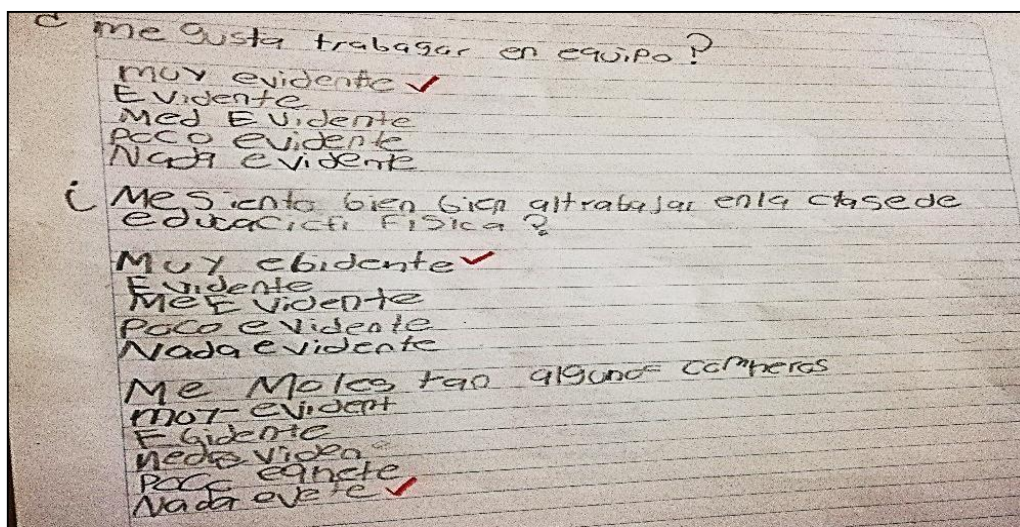 ¿ me gusta trabagar en equipo?
muy evidente ✓
Evidente
Med Evidente
Poco evidente
Nada evidente
¿ Me siento bien bien al trabajar en la clase de
educacicti Fisica?
Muy ebidente ✓
Evidente
Me Evidente
Poco evidente
Nada evidente
Me Moles tan algunos comperos
moy evident
Egidente
Poco eqnete
Nada evete ✓